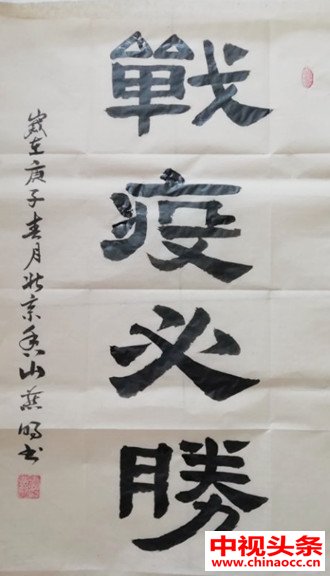 戰疫必勝
歲在庚子春月北京香山燕明書
中视头条
www.chinaocc.cn